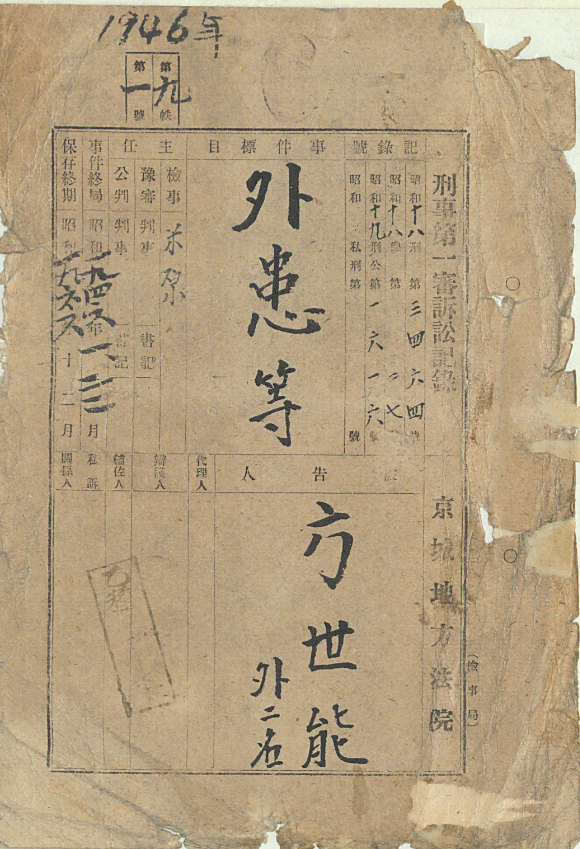 1946年
第九帙
第一號
刑事第一審訴訟記錄
京城地方法院
(檢事局)
記錄號
昭和十八刑第三四六四號
昭和十九刑公第一六一六號
昭和 私刑第 號
事件標目
外患等
主任
檢事
豫審判事
公判判事
書記
書記
事件終局 昭和 年 月
保存終期 昭和 年十二月
告人
方世能
外二名
代理人
辯護人
輔佐人
私訴
關係人